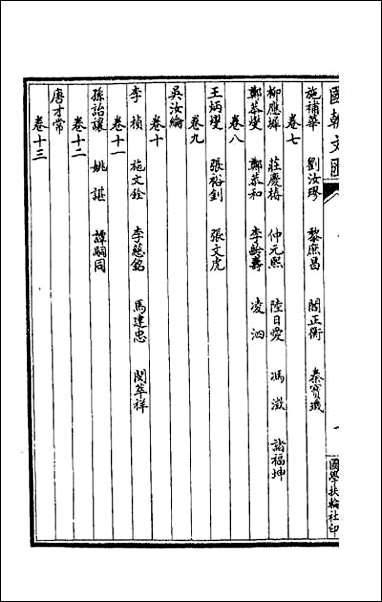 國朝文匯
國學扶輪社印
施補華　劉汝璆　黎庶昌　閻正衡　秦寶璣
卷七
柳應墀　莊慶椿　仲元熙　陸日愛　馮澂　諸福坤
鄭恭燮　鄭恭和　李齡壽　凌泗
卷八
王炳燮　張裕釗　張文虎
卷九
吳汝綸
卷十
李楨　施文銓　李慈銘　馬建忠　閔萃祥
卷十一
孫詒讓　姚諶　譚嗣同
卷十二
唐才常
卷十三